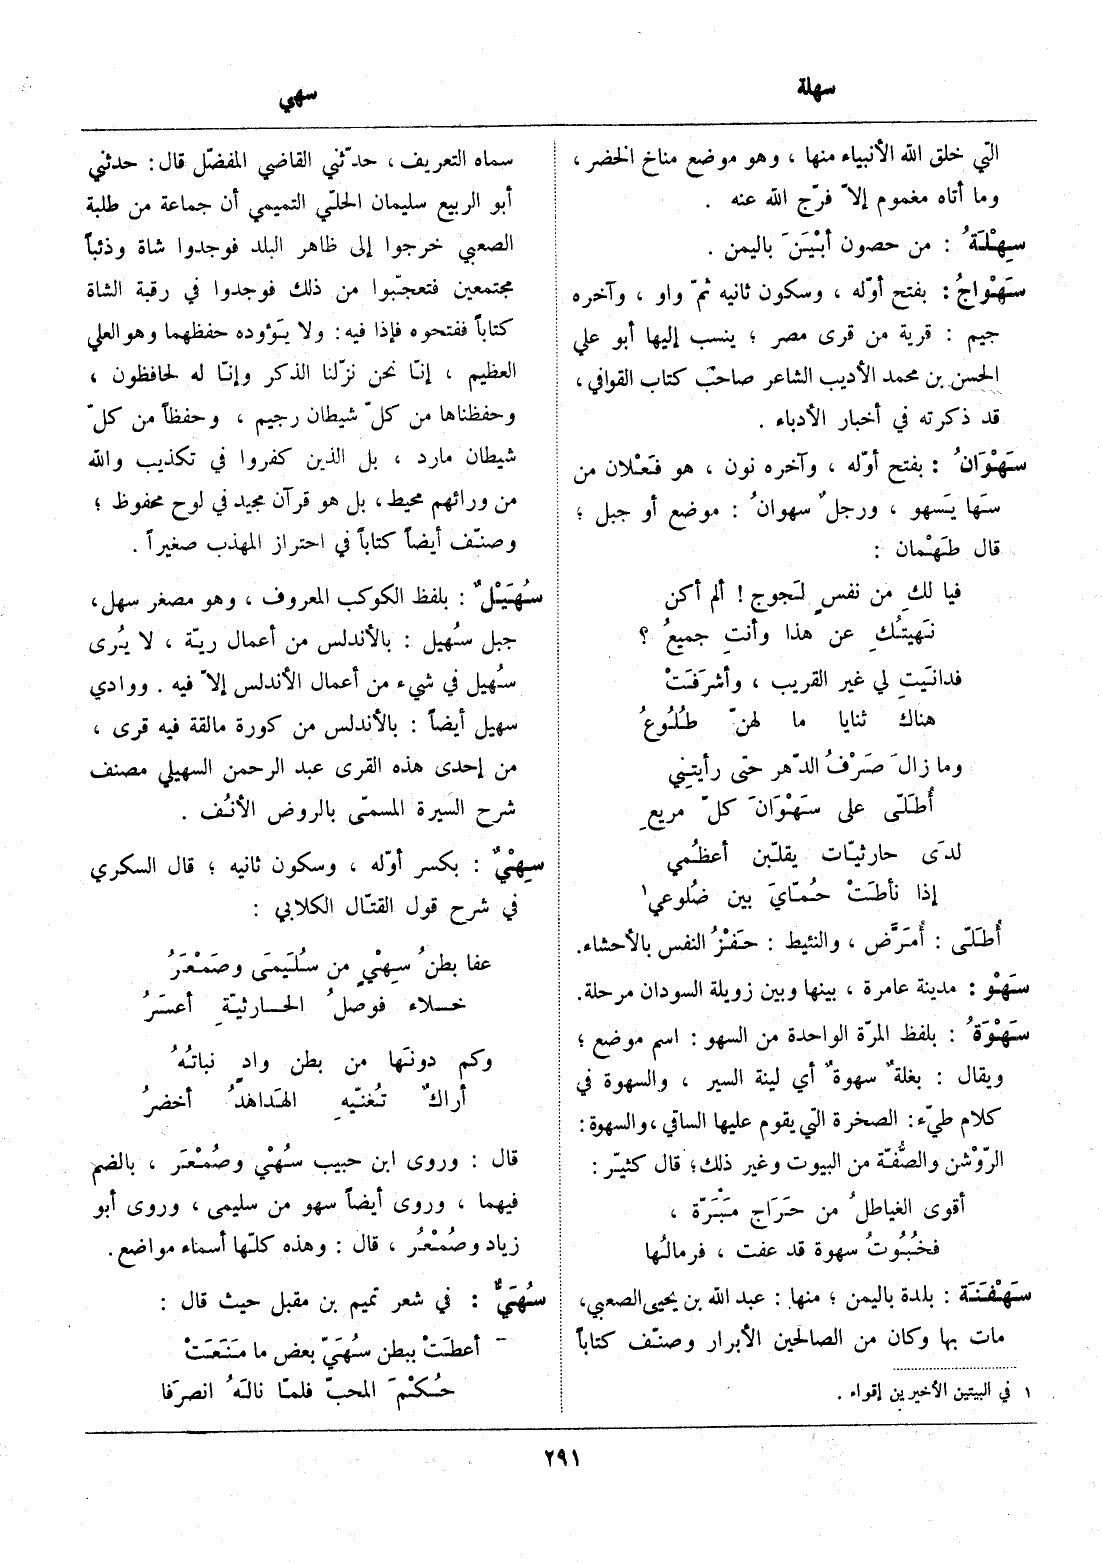 سهلة
سهي
الّتي خلق الله الأنبياء منها ، وهو موضع مناخ الخضر ،
وما أتاه مغموم إلاّ فرّج الله عنه .
سِهْلَةُ : من حصون أَبْيَنَ باليمن .
سَهْوَاجُ : بفتح أوّله ، وسكون ثانيه ثمّ واو ، وآخره
جيم : قرية من قرى مصر ؛ ينسب إليها أبو علي
الحسن بن محمد الأديب الشاعر صاحب كتاب القوافي ،
قد ذكرته في أخبار الأدباء .
سَهْوَانُ : بفتح أوّله ، وآخره نون ، هو فَعْلان من
سَها يَسهو ، ورجلٌ سهوانُ : موضع أو جبل ؛
قال طَهْمان :
فيا لكِ من نفسٍ لَجوج ! ألم أكن
نَهيتُكِ عن هذا وأنتِ جميعُ ؟
فدانَيتِ لي غير القريب ، وأشرَفَتْ
هناك ثنايا ما لهنّ طُلُوعُ
وما زالَ صَرْفُ الدّهر حتّى رأيتِني
أُطَلّى على سَهْوَانَ كلّ مريعِ
لدَى حارثيّات يقلّبن أعظُمي
إذا نأطَتْ حُمّايَ بين ضُلوعي١
أُطَلّى : أُمَرَّض ، والنئيط : حَفْزُ النفس بالأحشاء.
سَهْو : مدينة عامرة ، بينها وبين زويلة السودان مرحلة.
سَهْوَةُ : بلفظ المرّة الواحدة من السهو : اسم موضع ؛
ويقال : بغلةٌ سهوةٌ أي لينة السير ، والسهوة في
كلام طيّء : الصخرة التي يقوم عليها الساقي ، والسهوة :
الرّوْشن والصُّفّة من البيوت وغير ذلك ؛ قال كثيّر :
أقوى الغياطلُ من حَرَاج مَبْرَة ،
فخُبُوتُ سهوة قد عفت ، فرمالُها
سَهْفَنَة : بلدة باليمن ؛ منها : عبد الله بن يحيى الصعبي ،
مات بها وكان من الصالحين الأبرار وصنّف كتاباً
١ في البيتين الأخيرين إقواء .
سماه التعريف ، حدّثني القاضي المفضّل قال : حدثني
أبو الربيع سليمان الحلّي التميمي أن جماعة من طلبة
الصعبي خرجوا إلى ظاهر البلد فوجدوا شاة وذئباً
مجتمعين فتعجّبوا من ذلك فوجدوا في رقبة الشاة
كتاباً ففتحوه فإذا فيه : ولا يَؤوده حفظهما وهو العلي
العظيم ، إنّا نحن نزّلنا الذكر وإنّا له لحافظون ،
وحفظناها من كلّ شيطان رجيم ، وحفظاً من كلّ
شيطان مارد ، بل الذين كفروا في تكذيب والله
من ورائهم محيط ، بل هو قرآن مجيد في لوح محفوظ ؛
وصنّف أيضاً كتاباً في احتراز المهذب صغيراً .
سُهَيْلٌ : بلفظ الكوكب المعروف ، وهو مصغر سهل ،
جبل سُهيل : بالأندلس من أعمال ريّة ، لا يُرى
سُهيل في شيء من أعمال الأندلس إلاّ فيه . ووادي
سهيل أيضاً : بالأندلس من كورة مالقة فيه قرى ،
من إحدى هذه القرى عبد الرحمن السهيلي مصنف
شرح السيرة المسمّى بالروض الأنُف .
سِهْيٌ : بكسر أوّله ، وسكون ثانيه ؛ قال السكري
في شرح قول القتّال الكلابي :
عفا بطنُ سِهْيٍ من سُلَيمَى وصَمْعَرُ
خلاء فوصلُ الحارثيّةِ أعسَرُ
وكم دونَها من بطن وادٍ نباتُهُ
أراكٌ تُغنّيهِ الهَداهدُ أخضرُ
قال : وروى ابن حبيب سُهْي وصُمْعَر ، بالضم
فيهما ، وروى أيضاً سهو من سليمى ، وروى أبو
زياد وصُمْعُر ، قال : وهذه كلّها أسماء مواضع .
سُهَيٌّ : في شعر تميم بن مقبل حيث قال :
أعطَتْ ببطن سُهَيّ بعض ما مَنَعَتْ
حُكْمَ المحبّ فلمّا نالَهُ انصرَفا
٢٩١